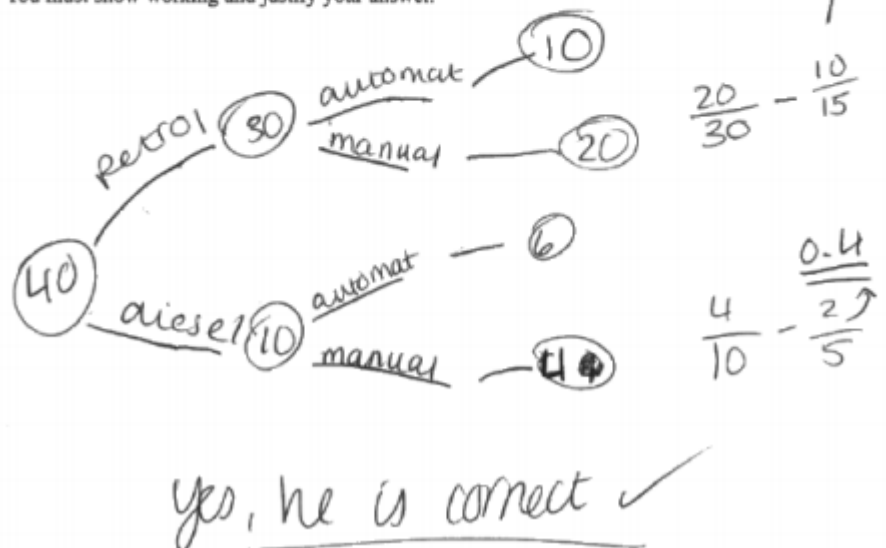 You must show working and justify your answer.
petrol 30 automat 10
manual 20
20/30 - 10/15
40
diesel 10 automat 6
manual 4
0.4
4/10 - 2/5
yes, he is correct ✓